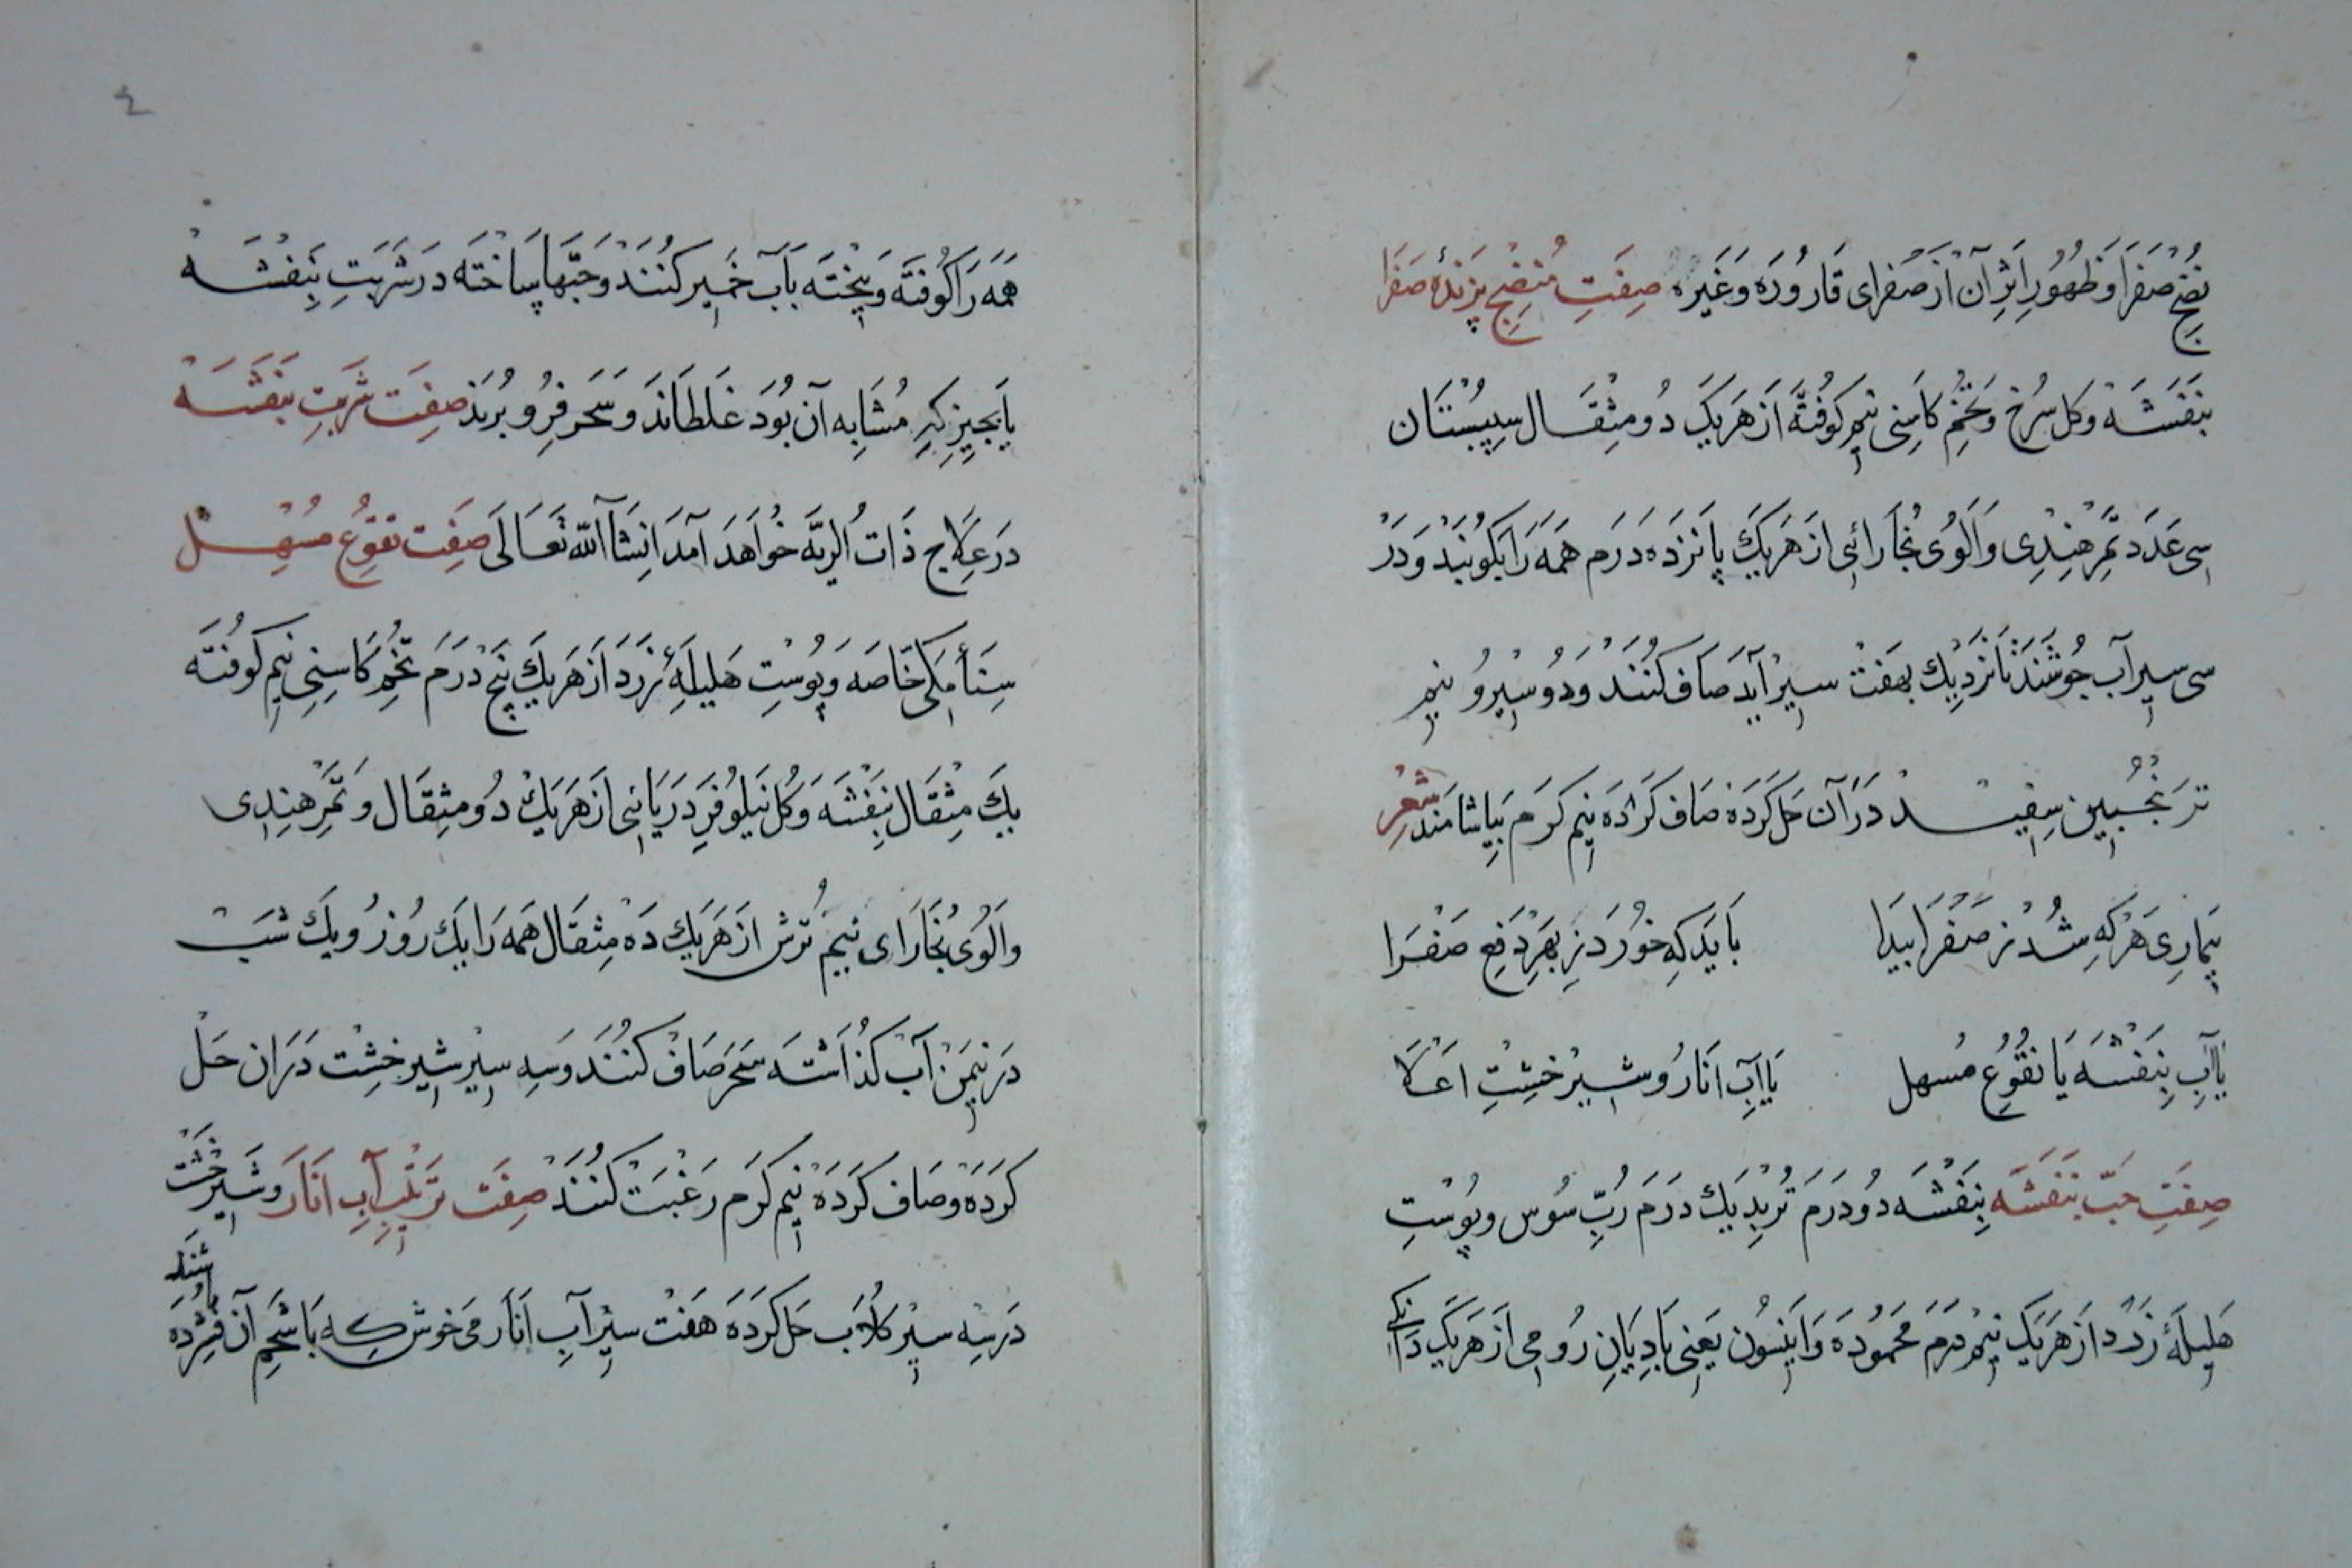 نضج صفرا و ظهور اثر آن از صفرای قاروره و غیره صفت منضج پزندهٔ صفرا
بنفشه و کل سرخ و تخم کاسنی نیم کوفته از هر یک دو مثقال سپستان
سی عدد تمر هندی و آلوی بخارائی از هر یک پانزده درم همه را بکوبند و در
سی سیر آب جوشند تا نزدیک بهفت سیر آید صاف کنند و دو سیر و نیم
ترنجبین سفید در آن حل کرده صاف کرده نیم کرم بیاشامند شعر
بیماری هر که شد ز صفرا پیدا باید که خورد ز بهر دفع صفرا
یا آب بنفشه یا نقوع مسهل یا آب انار و شیر خشت اعلا
صفت حب بنفشه بنفشه دو درم تربد یک درم رب سوس و پوست
هلیلهٔ زرد از هر یک نیم درم محموده و انیسون یعنی بادیان رومی از هر یک دانکی
٤
همه را کوفته و بیخته بآب خمیر کنند و حبها ساخته در شربت بنفشه
یا بچیزی که مشابه آن بود غلطاند و سحر فرو برند صفت شربت بنفشه
در علاج ذات الریه خواهد آمد انشاآالله تعالی صفت نقوع مسهل
سنأ مکی خاصه و پوست هلیلهٔ زرد از هر یک پنج درم تخم کاسنی نیم کوفته
یک مثقال بنفشه و کل نیلوفر دریائی از هر یک دو مثقال و تمر هندی
و آلوی بخارای نیم ترش از هر یک ده مثقال همه را یک روز و یک شب
در نیم من آب کذاشته سحر صاف کنند و سه سیر شیر خشت در ان حل
کرده و صاف کرده نیم کرم رغبت کنند صفت ترتیب آب انار و شیر خشت
در سه سیر کلاب حل کرده هفت سیر آب انار می خوش که با شحم آن فشرده
باشند